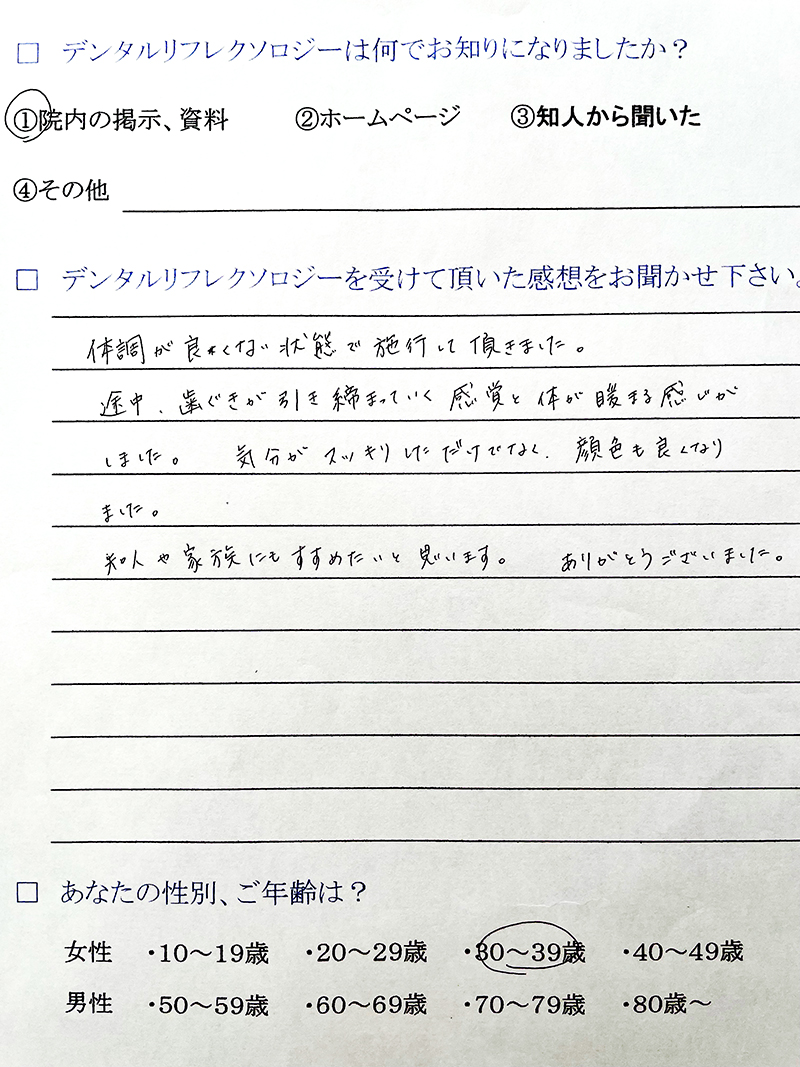 □ デンタルリフレクソロジーは何でお知りになりましたか？
①院内の掲示、資料 ②ホームページ ③知人から聞いた
④その他
□ デンタルリフレクソロジーを受けて頂いた感想をお聞かせ下さい。
体調が良くない状態で施行して頂きました。
途中、歯ぐきが引き締まっていく感覚と体が暖まる感じが
しました。 気分がスッキリしただけでなく、顔色も良くなり
ました。
知人や家族にもすすめたいと思います。 ありがとうございました。
□ あなたの性別、ご年齢は？
女性 ・10～19歳 ・20～29歳 ・30～39歳 ・40～49歳
男性 ・50～59歳 ・60～69歳 ・70～79歳 ・80歳～